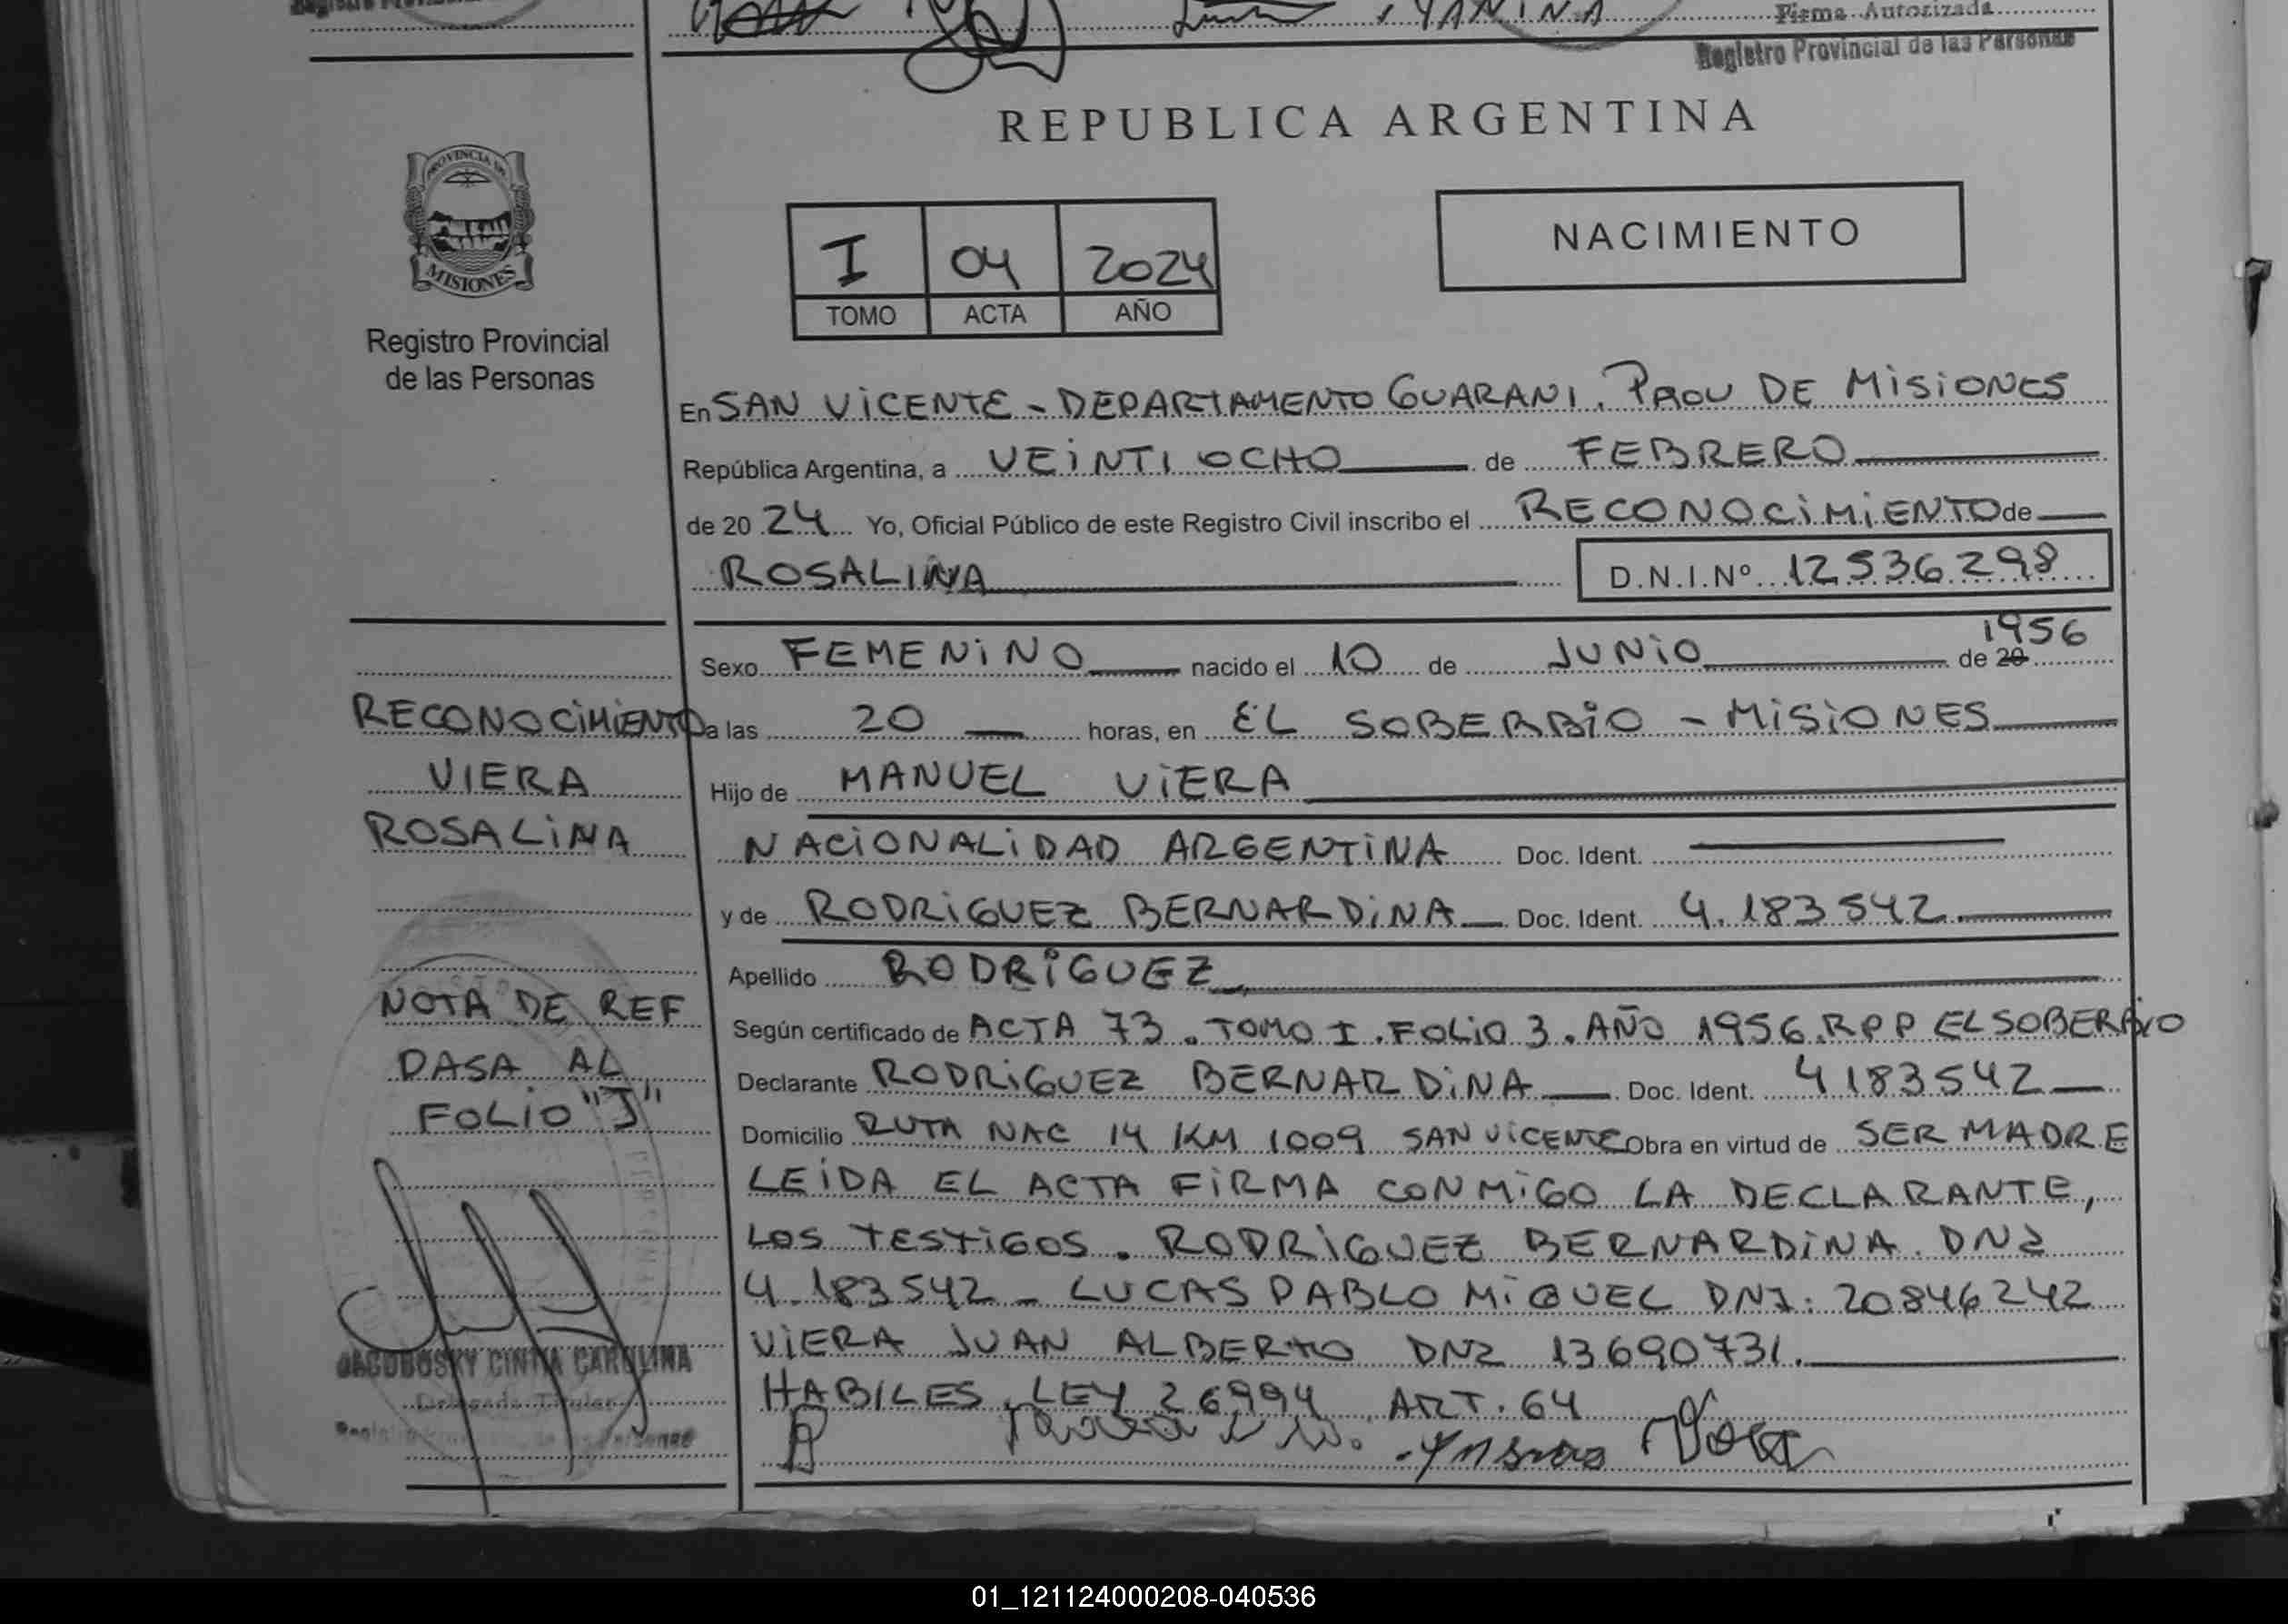 Firma Autorizada
Registro Provincial de las Personas
REPUBLICA ARGENTINA
PROVINCIA DE
MISIONES
Registro Provincial
de las Personas
I 04 2024
TOMO ACTA AÑO
NACIMIENTO
En SAN VICENTE - DEPARTAMENTO GUARANI. PROV DE MISIONES
República Argentina, a VEINTI OCHO de FEBRERO
de 20 24 Yo, Oficial Público de este Registro Civil inscribo el RECONOCIMIENTO de
ROSALINA D.N.I.Nº 12536298
Sexo FEMENINO nacido el 10 de JUNIO de 20 1956
a las 20 horas, en EL SOBERBIO - MISIONES
Hijo de MANUEL VIERA
NACIONALIDAD ARGENTINA Doc. Ident.
y de RODRIGUEZ BERNARDINA Doc. Ident. 4.183542
Apellido RODRIGUEZ
Según certificado de ACTA 73. TOMO I. FOLIO 3. AÑO 1956. RPP EL SOBERBIO
Declarante RODRIGUEZ BERNARDINA Doc. Ident. 4183542
Domicilio RUTA NAC 14 KM 1009 SAN VICENTE Obra en virtud de SER MADRE
LEIDA EL ACTA FIRMA CONMIGO LA DECLARANTE,
LOS TESTIGOS. RODRIGUEZ BERNARDINA. DNI
4.183542 - LUCAS PABLO MIGUEL DNI. 20846242
VIERA JUAN ALBERTO DNI 13690731.
HABILES. LEY 26994 ART. 64
RECONOCIMIENTO
VIERA
ROSALINA
NOTA DE REF
PASA AL
FOLIO "J"
JACUBOSKY CINTIA CAROLINA
Delegada Titular
01_121124000208-040536